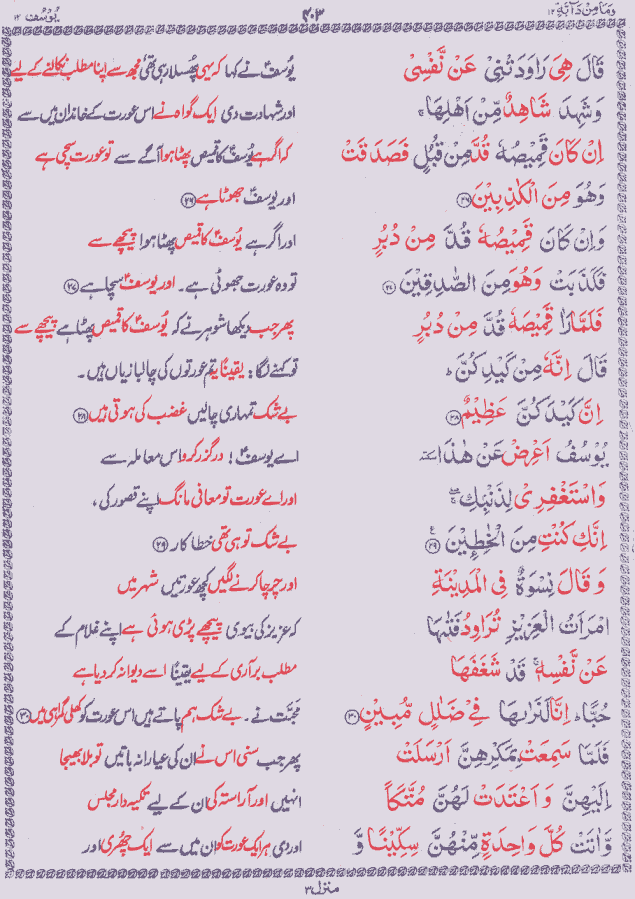 وَمَا مِنْ دَآبَّةٍ ۱۲
۴۰۳
یُوْسُف ۱۲
قَالَ هِیَ رَاوَدَتْنِیْ عَنْ نَّفْسِیْ
یُوسفؑ نے کہا کہ یہی پُھسلا رہی تھی مجھ سے اپنا مطلب نکالنے کے لیے
وَشَهِدَ شَاهِدٌ مِّنْ اَهْلِهَا ۚ
اور شہادت دی ایک گواہ نے اس عورت کے خاندان میں سے
اِنْ كَانَ قَمِیْصُهٗ قُدَّ مِنْ قُبُلٍ فَصَدَقَتْ
کہ اگر ہے یُوسفؑ کا قمیص پھٹا ہوا آگے سے تو عورت سچی ہے
وَهُوَ مِنَ الْكٰذِبِیْنَ ۲۶
اور یوسفؑ جھوٹا ہے ۲۶
وَاِنْ كَانَ قَمِیْصُهٗ قُدَّ مِنْ دُبُرٍ
اور اگر ہے یُوسفؑ کا قمیص پھٹا ہوا پیچھے سے
فَكَذَبَتْ وَهُوَ مِنَ الصّٰدِقِیْنَ ۲۷
تو وہ عورت جھوٹی ہے ۔ اور یوسفؑ سچا ہے ۲۷
فَلَمَّا رَاٰ قَمِیْصَهٗ قُدَّ مِنْ دُبُرٍ
پھر جب دیکھا شوہر نے کہ یُوسفؑ کا قمیص پھٹا ہے پیچھے سے
قَالَ اِنَّهٗ مِنْ كَیْدِكُنَّ ؕ
تو کہنے لگا : یقینًا یہ تم عورتوں کی چالبازیاں ہیں ۔
اِنَّ كَیْدَكُنَّ عَظِیْمٌ ۲۸
بے شک تمہاری چالیں غضب کی ہوتی ہیں ۲۸
یُوْسُفُ اَعْرِضْ عَنْ هٰذَا سكتة
اے یوسفؑ ! درگزر کرو اس معاملہ سے
وَاسْتَغْفِرِیْ لِذَنْۢبِكِ ۖۚ
اور اے عورت تو معافی مانگ اپنے قصور کی ،
اِنَّكِ كُنْتِ مِنَ الْخٰطِـِٕیْنَ ۲۹ ع
بے شک تو ہی تھی خطا کار ۲۹
وَ قَالَ نِسْوَةٌ فِی الْمَدِیْنَةِ
اور چرچا کرنے لگیں کچھ عورتیں شہر میں
امْرَاَتُ الْعَزِیْزِ تُرَاوِدُ فَتٰىهَا
کہ عزیز کی بیوی پیچھے پڑی ہوئی ہے اپنے غلام کے
عَنْ نَّفْسِهٖ ۚ قَدْ شَغَفَهَا
مطلب برآری کے لیے یقینًا اسے دیوانہ کر دیا ہے
حُبًّا ؕ اِنَّا لَنَرٰىهَا فِیْ ضَلٰلٍ مُّبِیْنٍ ۳۰
محبّت نے ۔ بے شک ہم پاتے ہیں اس عورت کو کھلی گمراہی میں ۳۰
فَلَمَّا سَمِعَتْ بِمَكْرِهِنَّ اَرْسَلَتْ
پھر جب سُنی اس نے ان کی عیارانہ باتیں تو بلا بھیجا
اِلَیْهِنَّ وَ اَعْتَدَتْ لَهُنَّ مُتَّكَاً
انہیں اور آراستہ کی ان کے لیے تکیہ دار مجلس
وَّ اٰتَتْ كُلَّ وَاحِدَةٍ مِّنْهُنَّ سِكِّیْنًا وَّ
اور دی ہر ایک عورت کو ان میں سے ایک چُھری اور
منزل ۳